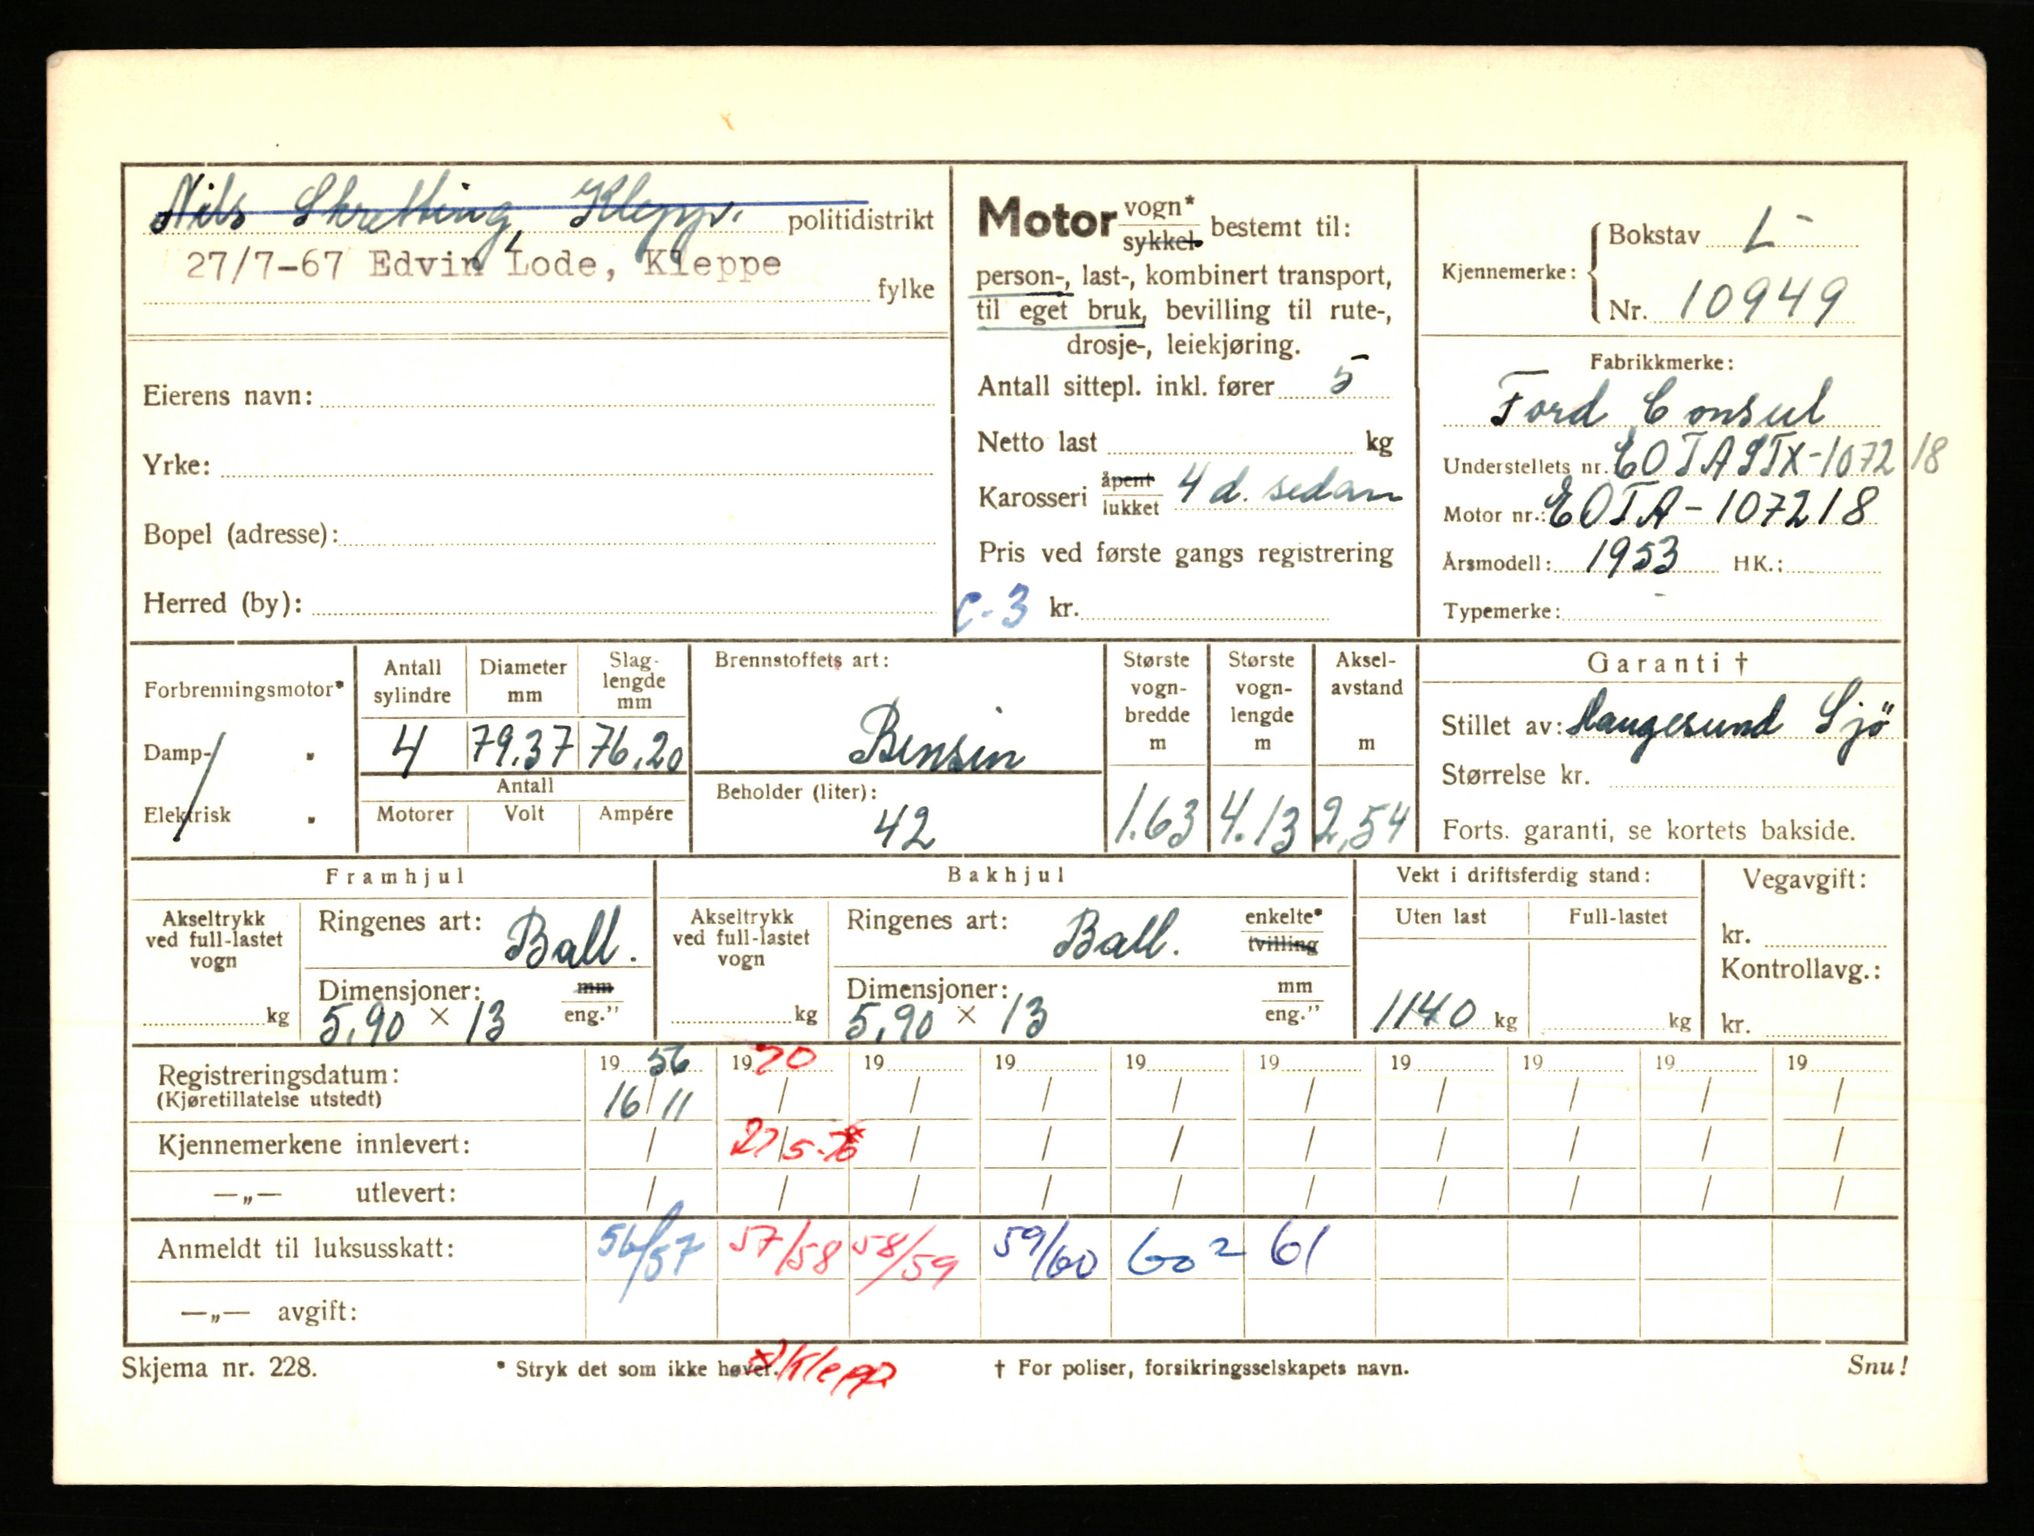 Nils Skretting, Klepp. politidistrikt
27/7-67 Edvin Lode, Kleppe
fylke
Eierens navn:
Yrke:
Bopel (adresse):
Herred (by):
Motor vogn* sykkel bestemt til:
person-, last-, kombinert transport,
til eget bruk, bevilling til rute-,
drosje-, leiekjøring.
Antall sittepl. inkl. fører 5
Netto last kg
Karosseri åpent lukket 4 d. sedan
Pris ved første gangs registrering
C-3 kr.
Kjennemerke: Bokstav L-
Nr. 10949
Fabrikkmerke:
Ford Consul
Understellets nr. EOTASTX-107218
Motor nr.: EOTA-107218
Årsmodell: 1953 HK.:
Typemerke: -
Forbrenningsmotor*
Damp- "
Elektrisk "
Antall sylindre
4
Diameter mm
79,37
Slag-lengde mm
76,20
Antall
Motorer Volt Ampére
Brennstoffets art:
Bensin
Beholder (liter):
42
Største vogn-bredde m
1.63
Største vogn-lengde m
4.13
Aksel-avstand m
2,54
Garanti †
Stillet av: Haugesund Sjø
Størrelse kr.
Forts. garanti, se kortets bakside.
Framhjul
Akseltrykk ved full-lastet vogn
kg
Ringenes art: Ball.
Dimensjoner: mm eng."
5,90 × 13
Bakhjul
Akseltrykk ved full-lastet vogn
kg
Ringenes art: Ball. enkelte* tvilling
Dimensjoner: mm eng."
5,90 × 13
Vekt i driftsferdig stand:
Uten last Full-lastet
1140 kg kg
Vegavgift:
kr.
Kontrollavg.:
kr.
19 56 19 70 19 19 19 19 19 19 19 19
Registreringsdatum:
(Kjøretillatelse utstedt) 16/11 / / / / / / / / /
Kjennemerkene innlevert: / 27/5-70* / / / / / / / /
—„— utlevert: / / / / / / / / / /
Anmeldt til luksusskatt: 56/57 57/58 58/59 59/60 60² 61
—„— avgift:
Skjema nr. 228. * Stryk det som ikke høver. *) Klepp. † For poliser, forsikringsselskapets navn. Snu!